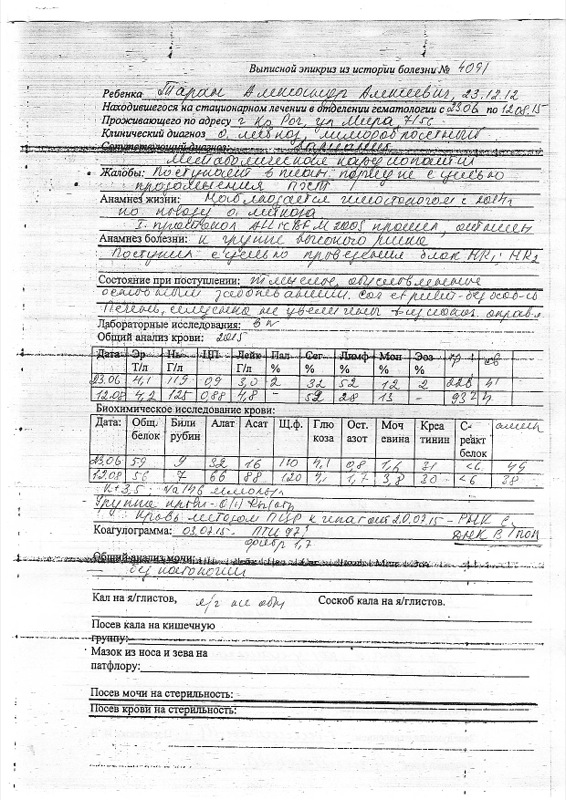 Выписной эпикриз из истории болезни № 4091
Ребенка Таран Александр Алексеевич, 23.12.12
Находившегося на стационарном лечении в отделении гематологии с 23.06 по 12.08.15
Проживающего по адресу г. Кр Рог, ул Мира, 7/56
Клинический диагноз О. лейкоз, лимфобластный
Сопутствующий диагноз:
Метаболическая кардиопатия
Жалобы: Поступает в план. порядке с целью
продолжения ПХТ
Анамнез жизни: Наблюдается гематологом с 2014г
по поводу о. лейкоза
I. протокол ALL IC BFM 2005 прошел, отнесен
Анамнез болезни: к группе высокого риска
Поступил с целью проведения блок HR1, HR2
Состояние при поступлении: тяжелое, обусловленное
основным заболеванием. Cor
Печень, селезенка не увеличены
Лабораторные исследования:
Общий анализ крови: 2015
Дата Эр Т/л Нь Г/л ЦП Лейк Г/л Пал % Сег % Лимф % Мон % Эоз %
23.06 4,1 119 0,9 3,0 2 32 52 12 2 228 4
12.08 4,2 125 0,88 4,8 – 59 28 13 – 932 4
Биохимическое исследование крови:
Дата: Общ. белок Били рубин Алат Асат Щ.ф. Глю коза Ост. азот Моч евина Креа тинин С-реакт белок
23.06 59 9 32 16 110 4,1 0,8 1,6 31 <6 49
12.08 56 7 66 88 120 4,1 1,7 3,8 30 <6 38
К+ 3,5 Na 146 ммоль/л
Группа крови - 0(I)
Кровь методом ПЦР к гепатит 20.07.15 - РНК С,
Коагулограмма: 03.07.15. ПТИ 97% ДНК В
фибр 1,7
Общий анализ мочи:
без патологии
Кал на я/глистов, я/г не обн Соскоб кала на я/глистов.
Посев кала на кишечную
группу:
Мазок из носа и зева на
патфлору:
Посев мочи на стерильность:
Посев крови на стерильность: